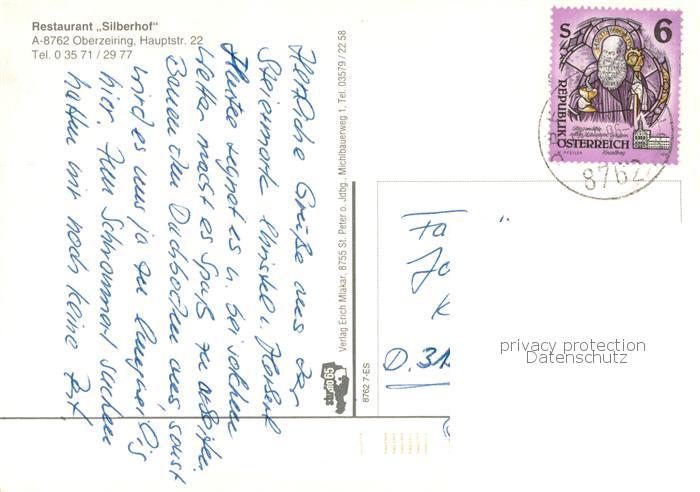 Restaurant „Silberhof"
A-8762 Oberzeiring, Hauptstr. 22
Tel. 0 35 71 / 29 77
Herzliche Grüße aus der
Steiermark Christl u. Herbert
Heute regnet es u. bei solchem
Wetter macht es Spaß zu arbeiten.
Bauen den Dachboden aus, sonst
wird es uns ja zu langweilig
hier. Zum Schwammerl suchen
hatten wir noch keine Zeit.
Verlag Erich Mlakar, 8755 St. Peter o. Jdbg., Michlbauerweg 1, Tel. 03579 / 22 58
studio 65
8762 7-ES
S 6
REPUBLIK
ÖSTERREICH
8762
Fa
Jo
K
D. 31
privacy protection
Datenschutz